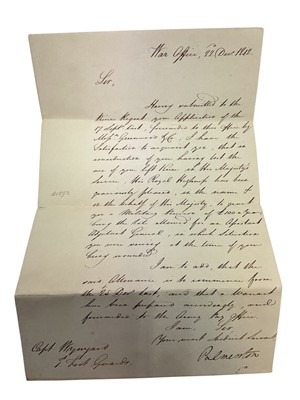 War Office, 22 Dec 1812
Sir,
Having submitted to the
Prince Regent your Application of the
17 Sept last, forwarded to this Office by
Messrs Greenwood &c, I have the
Satisfaction to acquaint you, that in
consideration of you having lost the
use of your left Knee in His Majesty's
Service His Royal Highness has been
graciously pleased, in the name &
on the behalf of His Majesty, to grant
you a Military Pension of £
being the rate allowed for an Assistant
Adjutant General, in which situation
you were serving at the time of your
being wounded.
I am to add, that the
said Allowance is to commence from
the 25 Dec last and that a Warrant
has been prepared accordingly and
forwarded to the Army Pay Office.
I am Sir
Your most obedient Servant
Palmerston
Capt
1 Foot Guards.